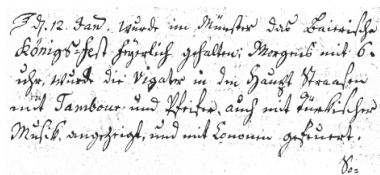 d. 12. Jan. wurde im Münster das Bairische
Königs-Fest feyerlich gehalten; Morgens mit 6.
uhr, wurde die in den Haupt Strassen
mit Tambour und Pfeifer, auch mit türkischer
Musik angezeigt, und mit Canonen gefeuert.
So=